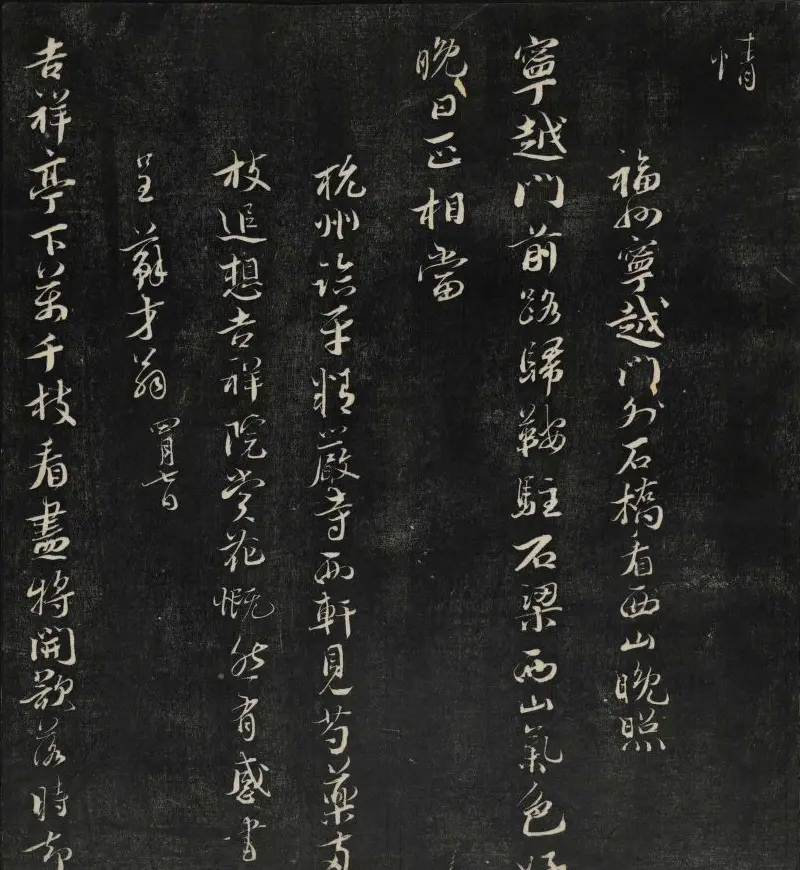 情
福州寧越門外石橋看西山晚照
寧越門前路歸鞍駐石梁西山氣色好
晚日正相當
杭州臨平精嚴寺西軒見芍藥兩
枝追想吉祥院賞花慨然有感書
呈蘇才翁
四月七日
吉祥亭下萬千枝看盡將開欲落時却